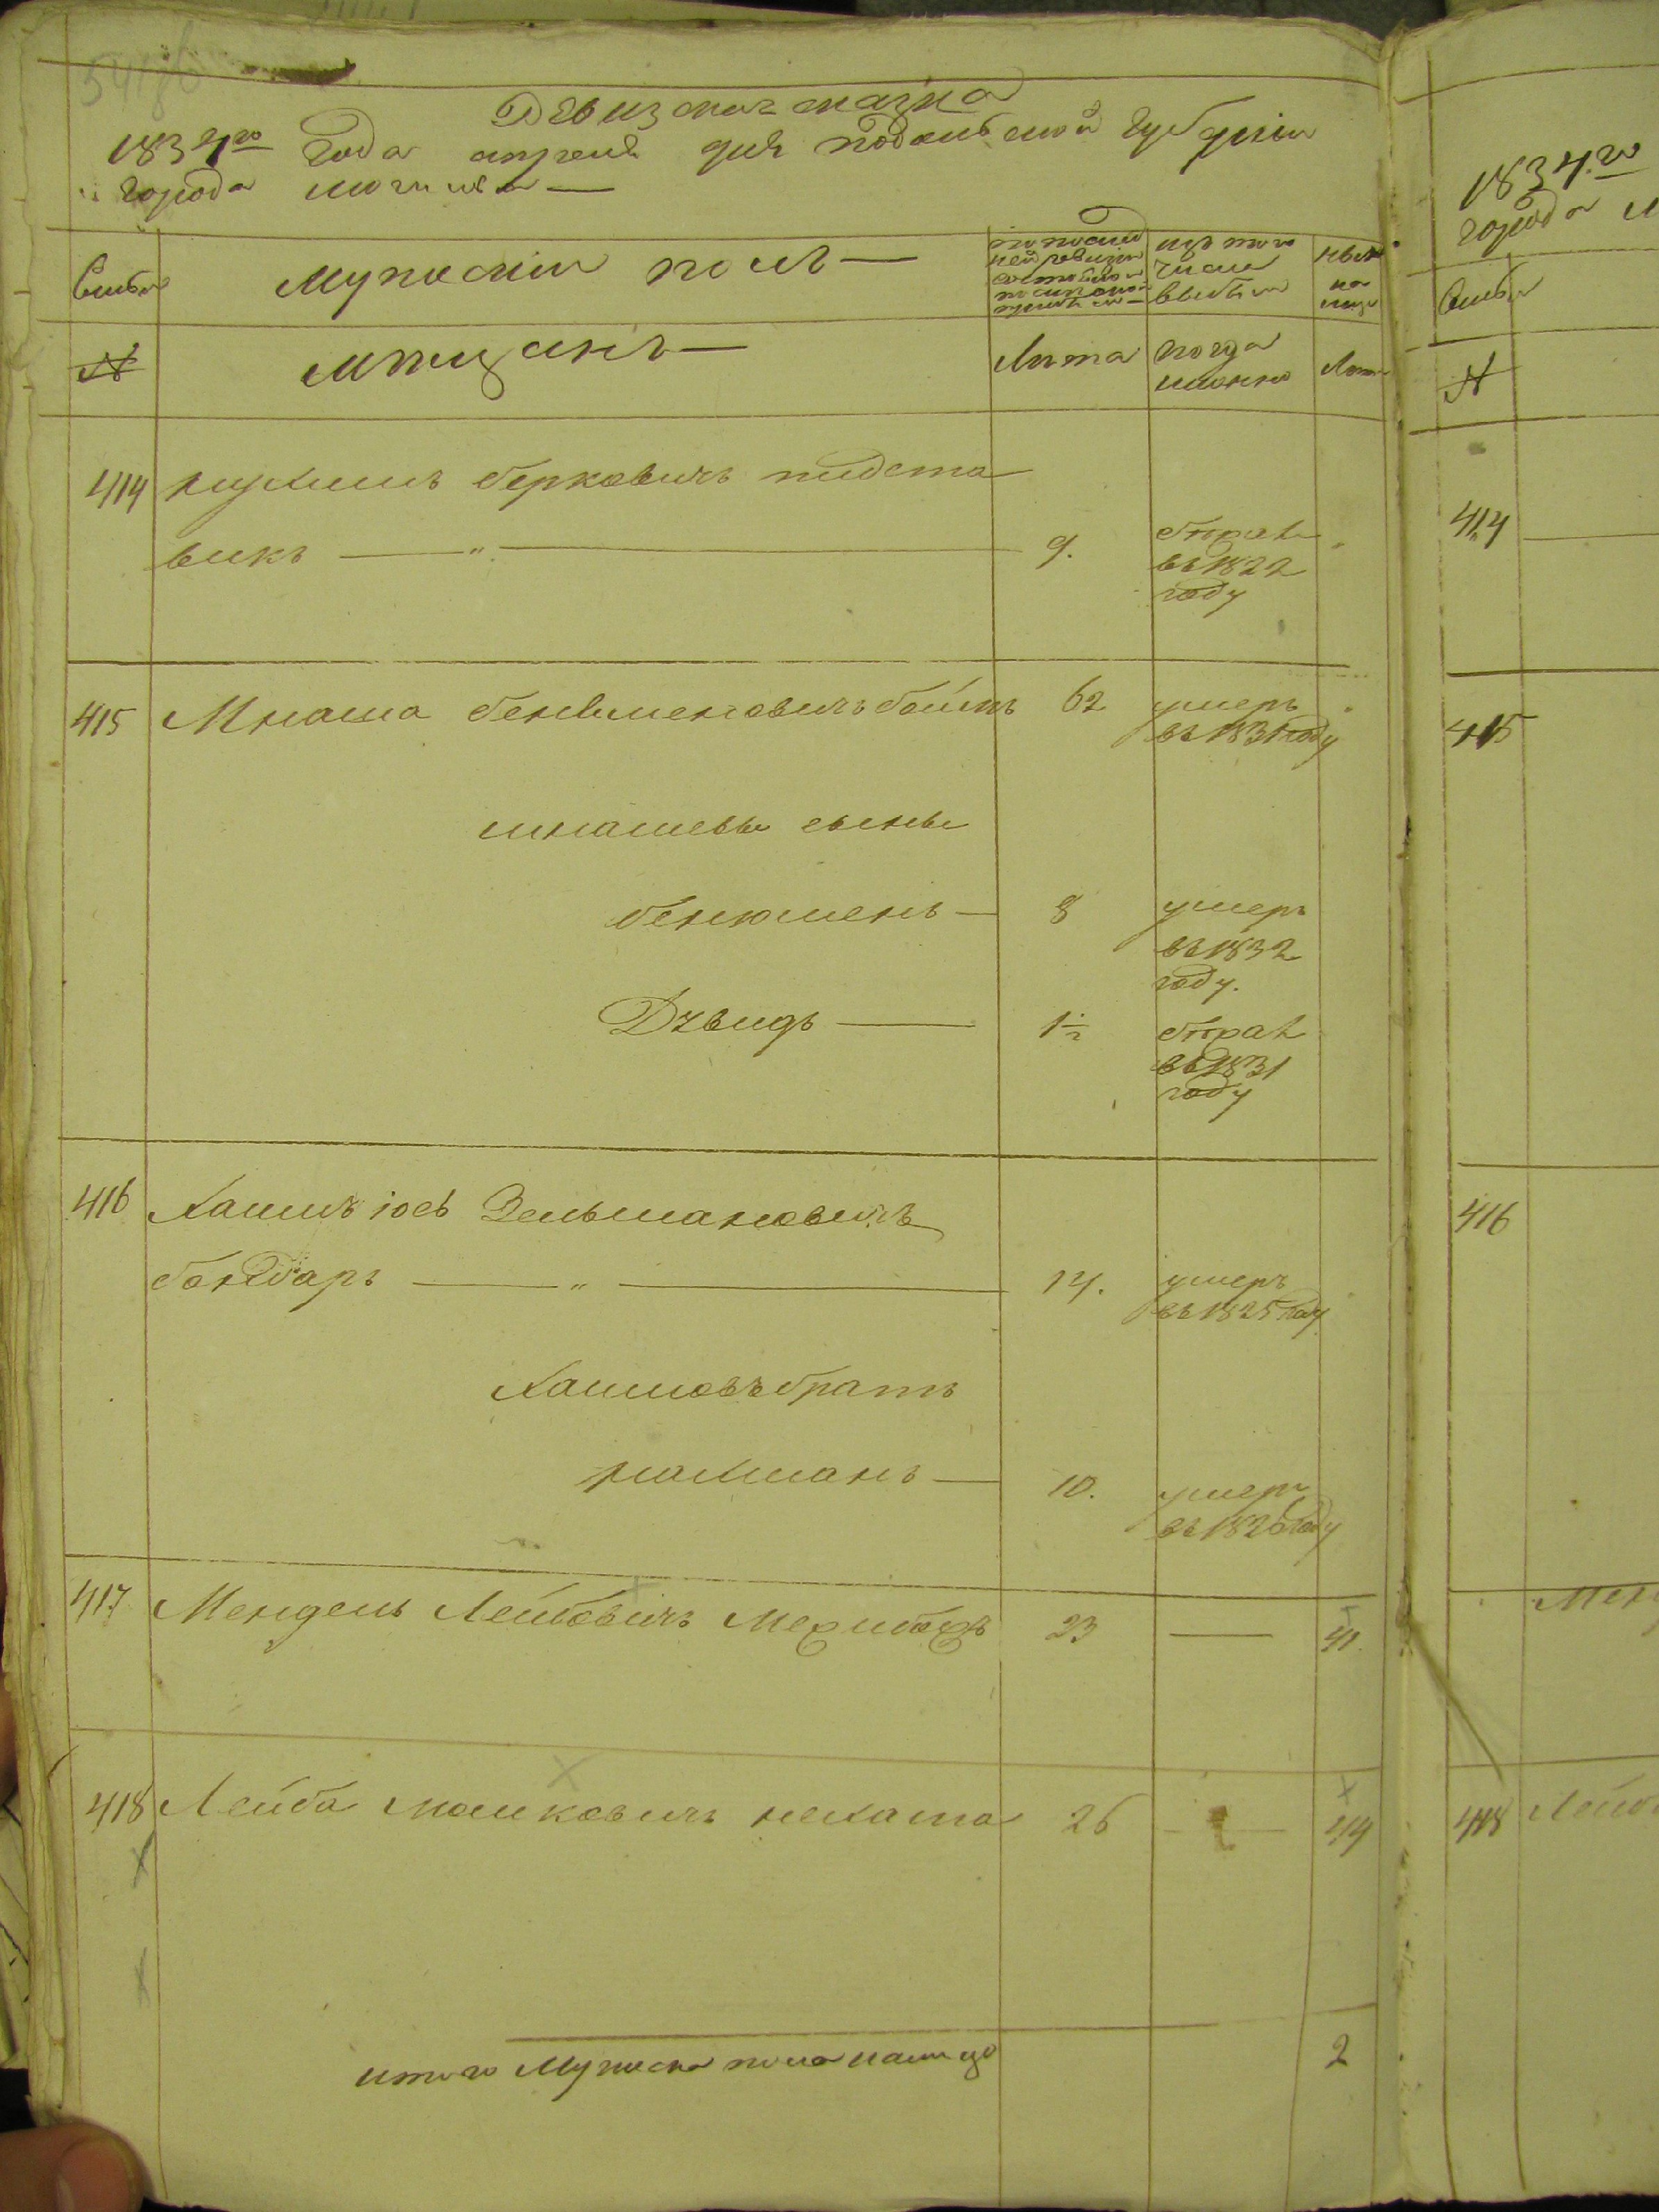 Ревизская сказка
1834го Года апреля дня подольской Губернии
города могилева —
Семьи
мужеской пол —
по послед
ней ревизии
состояло и
после оной
прибыло —
изъ того
числа
выбыло
ныне
на
лицо
№
мещанъ —
Лета
когда
именно
Лета
414 нухимъ берковичъ пидста
викъ — " — 9.
бѣжалъ
въ 1822
году
415 Мнаша бенюменовичъ 62
умеръ
въ 1831 году
мнашевы сыны
бенюменъ — 8
умеръ
въ 1832
году.
Дувидъ — 1½
бѣжалъ
въ 1831
году
416 Хаимъ іось Зельмановичъ
бондаръ — " — 14.
умеръ
въ 1825 году
Хаимовъ братъ
нахманъ — 10.
умеръ
въ 1826 году
417 Мендель Лейбовичъ 23 — 41.
418 Лейба мошковичъ нехата 26 — 44
итого Мужеска пола налицо 2
1834.го
города М
Семьи
№
414
415
416
Мен
418 Лейб